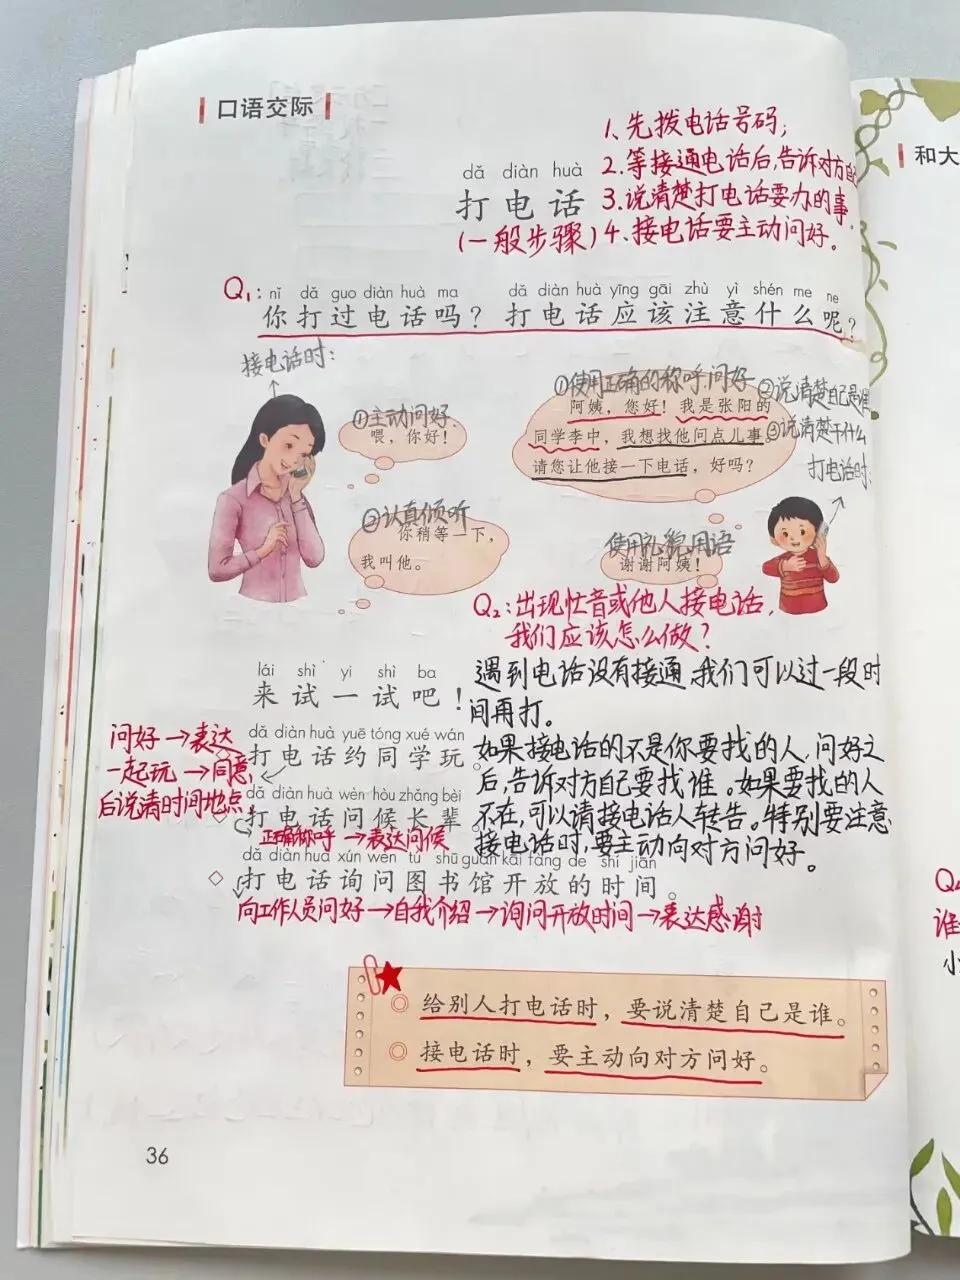 口语交际
和大
1、先拨电话号码；
2、等接通电话后,告诉对方自
3、说清楚打电话要办的事.
(一般步骤) 4、接电话要主动问好。
dǎ diàn huà
打电话
Q1:
nǐ dǎ guo diàn huà ma dǎ diàn huà yīng gāi zhù yì shén me ne
你打过电话吗？打电话应该注意什么呢？
接电话时:
①主动问好.
喂，你好！
②认真倾听
你稍等一下，
我叫他。
①使用正确的称呼问好
②说清楚自己是谁
阿姨，您好！我是张阳的
同学李中，我想找他问点儿事。
③说清楚干什么
请您让他接一下电话，好吗？
打电话时:
使用礼貌用语
谢谢阿姨！
Q2:出现忙音或他人接电话,
我们应该怎么做?
遇到电话没有接通,我们可以过一段时
间再打。
如果接电话的不是你要找的人,问好之
后,告诉对方自己要找谁。如果要找的人
不在,可以请接电话人转告。特别要注意:
接电话时,要主动向对方问好。
lái shì yi shì ba
来试一试吧！
dǎ diàn huà yuē tóng xué wán
打电话约同学玩。
问好→表达
一起玩→同意,
后说清时间地点
dǎ diàn huà wèn hòu zhǎng bèi
打电话问候长辈。
正确称呼→表达问候
dǎ diàn huà xún wèn tú shū guǎn kāi fàng de shí jiān
打电话询问图书馆开放的时间。
向工作人员问好→自我介绍→询问开放时间→表达感谢
给别人打电话时，要说清楚自己是谁。
接电话时，要主动向对方问好。
36
谁